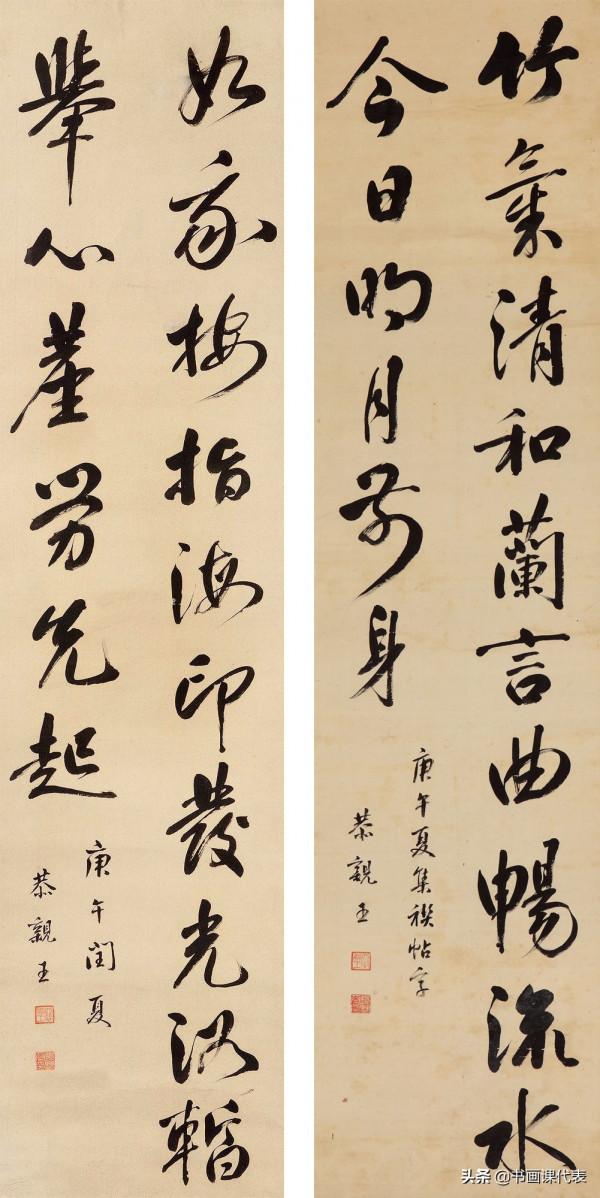 竹氣清和蘭言曲暢流水
今日明月前身
庚午夏集禊帖字
恭親王
如我按指海印發光汝暫
舉心塵勞先起
庚午閏夏
恭親王
头条 @书画课代表